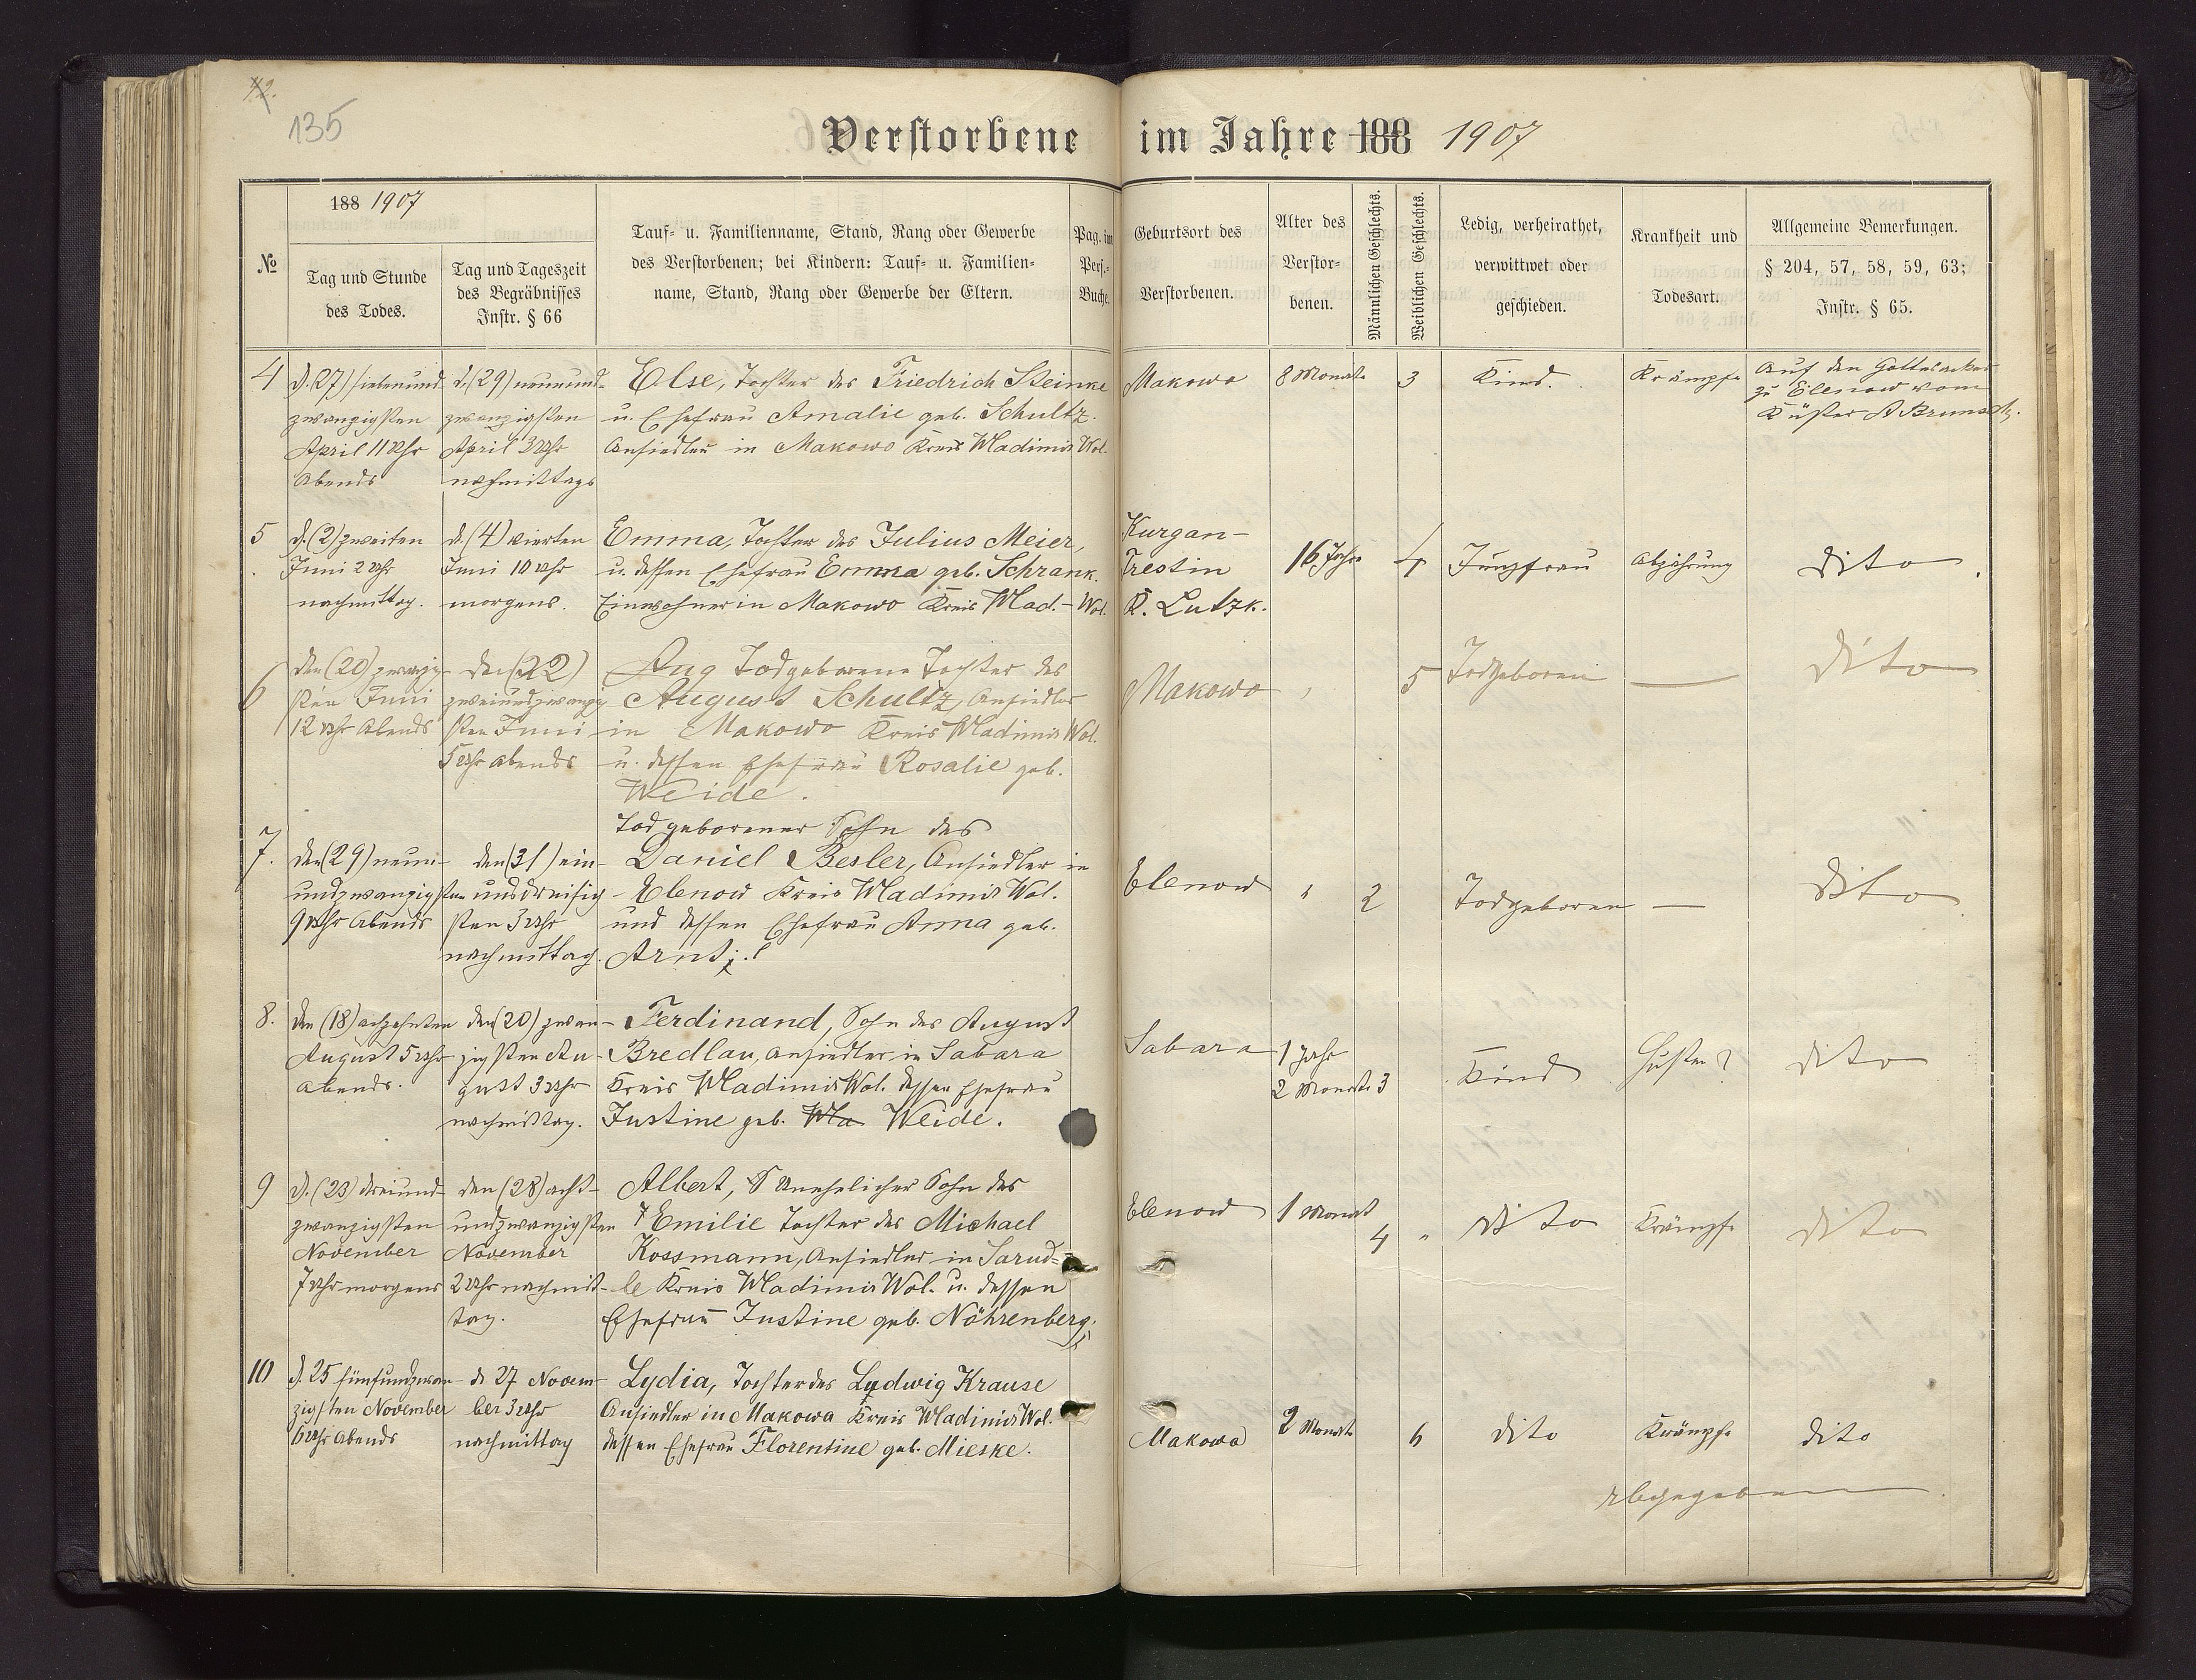 42.
135
Verstorbene im Jahre 188 1907
№
188 1907
Tag und Stunde
des Todes.
Tag und Tageszeit
des Begräbnisses
Instr. § 66
Tauf- u. Familienname, Stand, Rang oder Gewerbe
des Verstorbenen; bei Kindern: Tauf- u. Familien-
name, Stand, Rang oder Gewerbe der Eltern.
Pag. im
Pers.-
Buche.
Geburtsort des
Verstorbenen.
Alter des
Verstor-
benen.
Männlichen Geschlechts.
Weiblichen Geschlechts.
Ledig, verheirathet,
verwittwet oder
geschieden.
Krankheit und
Todesart.
Allgemeine Bemerkungen.
§ 204, 57, 58, 59, 63;
Instr. § 65.
4
d. (27) siebenund-
zwanzigsten
April 11 Uhr
Abends
d. (29) neunund-
zwanzigsten
April 3 Uhr
nachmittags
Else, Tochter des Friedrich Steinke
u. Ehefrau Amalie geb. Schultz.
Ansiedler in Makowo Kreis Wladimir Wol.
Makowo
8 Monate
3
Kind.
Krämpfe
Auf den Gottesacker
zu Elenow vom
Küster A Brunsch.
5
d. (2) zweiten
Juni 2 Uhr
nachmittag.
d. (4) vierten
Juni 10 Uhr
morgens.
Emma, Tochter des Julius Meier,
u. dessen Ehefrau Emma geb. Schrank.
Einwohner in Makowo Kreis Wlad.-Wol.
Kurgan-
Trestin
K. Lutzk.
16 Jahre
4
Jungfrau
Abzehrung
dito
6
den (20) zwanzig-
sten Juni
12 Uhr Abends
den (22)
zweiundzwanzig
sten Juni
5 Uhr abends
Todgeborene Tochter des
August Schultz, Ansiedler
in Makowo Kreis Wladimir Wol.
u. dessen Ehefrau Rosalie geb.
Weide.
Makowo
5
Todgeboren
dito
7.
den (29) neun-
undzwanzigsten
9 Uhr Abends
den (31) ein-
unddreisig-
sten 3 Uhr
nachmittag.
Todgeborener Sohn des
Daniel Besler, Ansiedler in
Elenow Kreis Wladimir Wol.
und dessen Ehefrau Anna geb.
Arnt
Elenow
2
Todgeboren
dito
8.
den (18) achzehnten
August 5 Uhr
abends.
den (20) zwan-
zigsten Au-
gust 3 Uhr
nachmittag.
Ferdinand, Sohn des August
Bredlau, Ansiedler in Sabara
Kreis Wladimir Wol. dessen Ehefrau
Justine geb. Wla Weide.
Sabara
1 Jahr
2 Monate
3
Kind
Husten
dito
9
d. (23) dreiund-
zwanzigsten
November
7 Uhr morgens
den (28) acht-
undzwanzigsten
November
2 Uhr nachmit-
tag.
Albert, Unehelicher Sohn der
Emilie Tochter des Michael
Kossmann, Ansiedler in Sarud-
le Kreis Wladimir Wol. u. dessen
Ehefrau Justine geb. Nöhrenberg.
Elenow
1 Monat
4
dito
Krämpfe
dito
10
d. 25 fünfundzwan-
zigsten November
6 Uhr Abends
d. 27 Novem-
ber 3 Uhr
nachmittag
Lydia, Tochter des Ludwig Krause
Ansiedler in Makowa Kreis Wladimir Wol.
dessen Ehefrau Florentine geb. Mieske.
Makowa
2 Monate
6
dito
Krämpfe
dito
Abgegeben